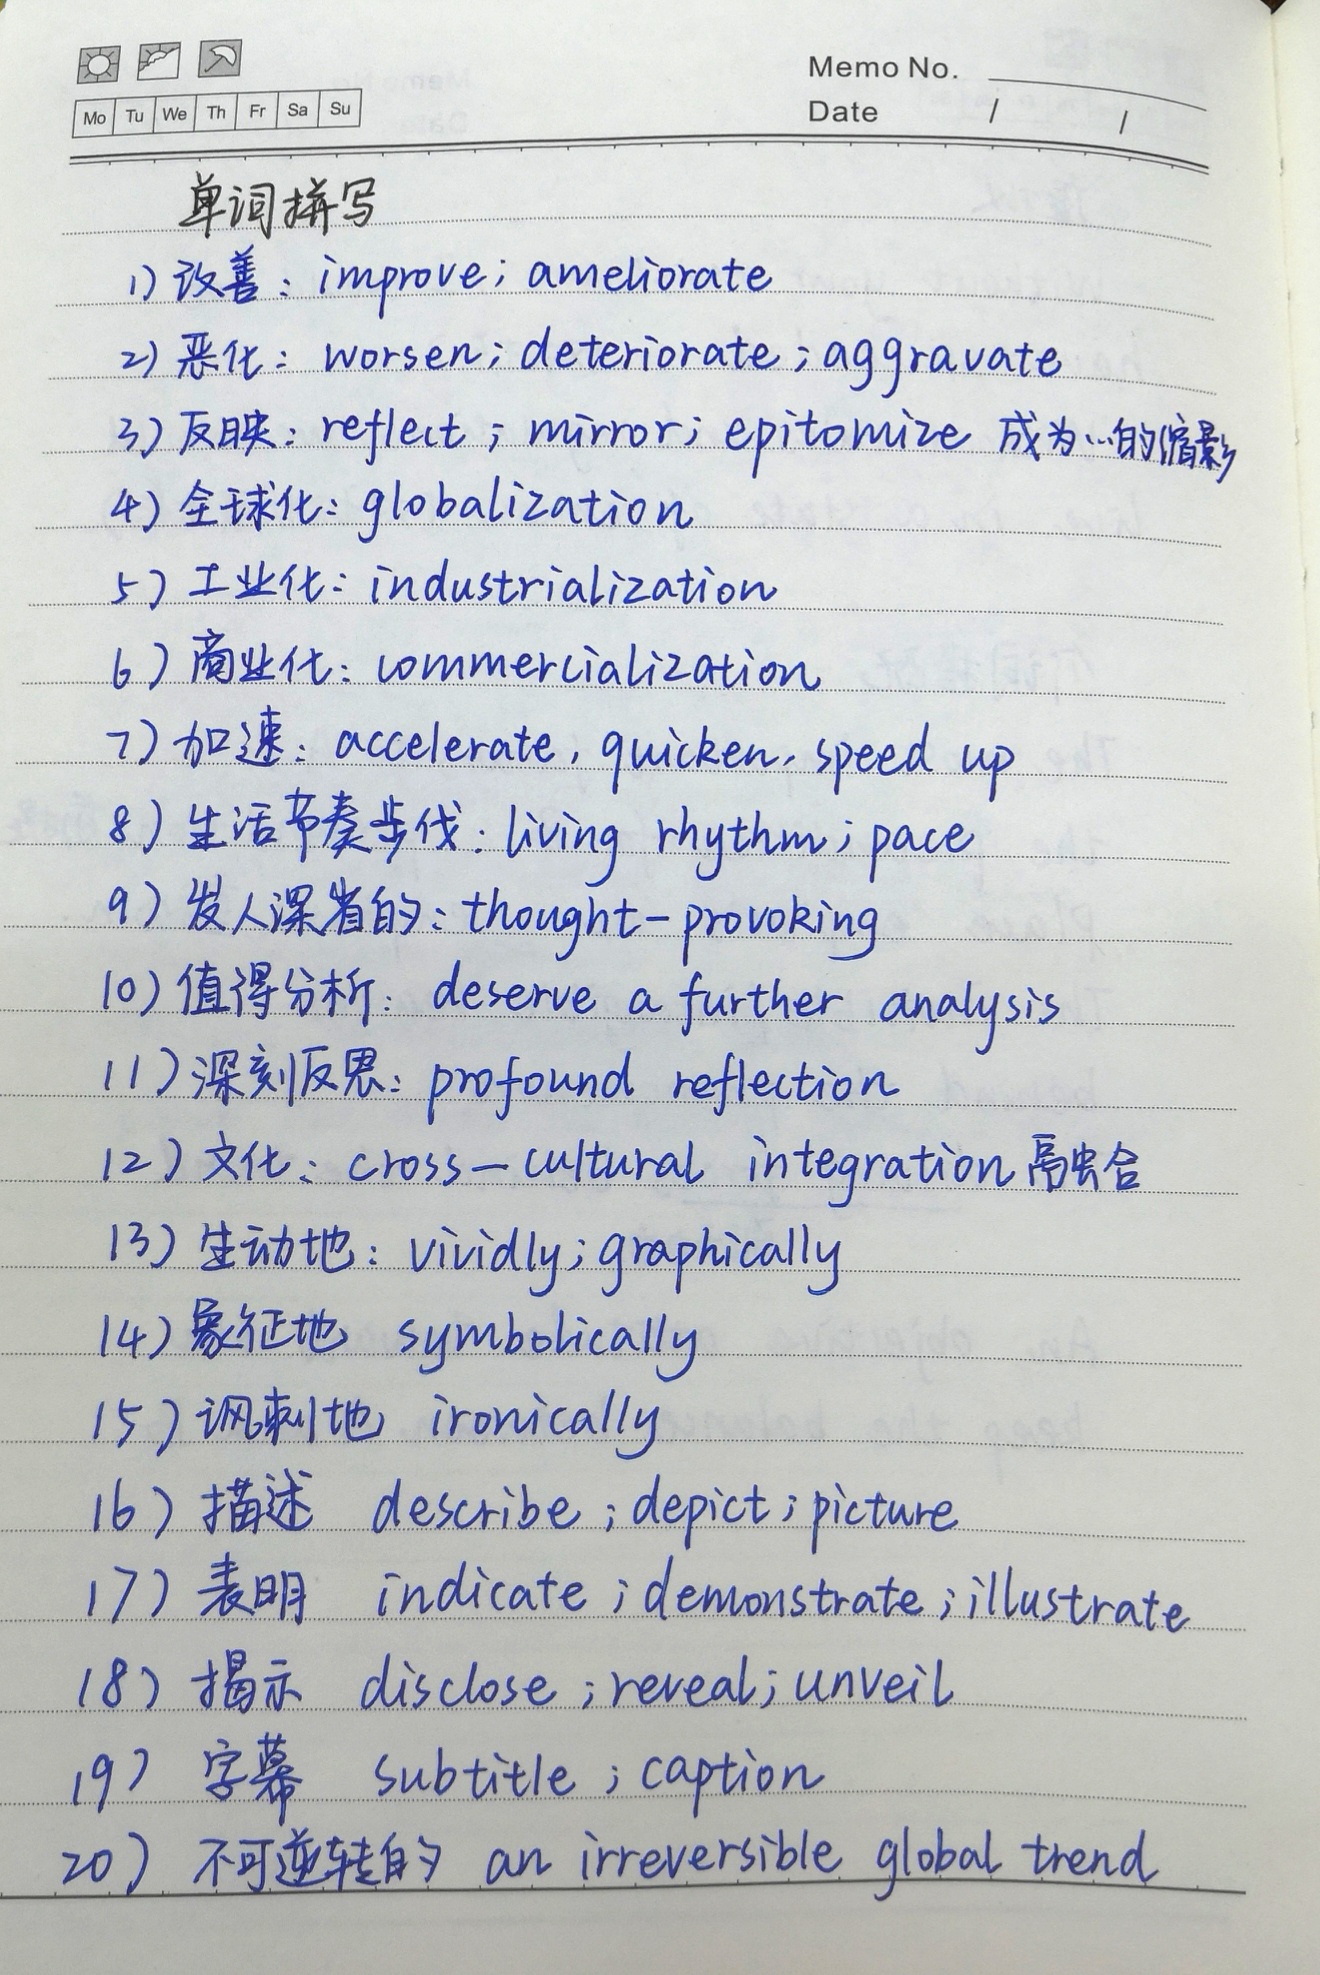 Memo No.
Mo Tu We Th Fr Sa Su
Date / /
单词拼写
1) 改善: improve; ameliorate
2) 恶化: worsen; deteriorate; aggravate
3) 反映: reflect; mirror; epitomize 成为…的缩影
4) 全球化: globalization
5) 工业化: industrialization
6) 商业化: commercialization
7) 加速: accelerate, quicken, speed up
8) 生活节奏步伐: living rhythm; pace
9) 发人深省的: thought-provoking
10) 值得分析: deserve a further analysis
11) 深刻反思: profound reflection
12) 文化: cross-cultural integration 融合
13) 生动地: vividly; graphically
14) 象征地 symbolically
15) 讽刺地 ironically
16) 描述 describe; depict; picture
17) 表明 indicate; demonstrate; illustrate
18) 揭示 disclose; reveal; unveil
19) 字幕 subtitle; caption
20) 不可逆转的 an irreversible global trend